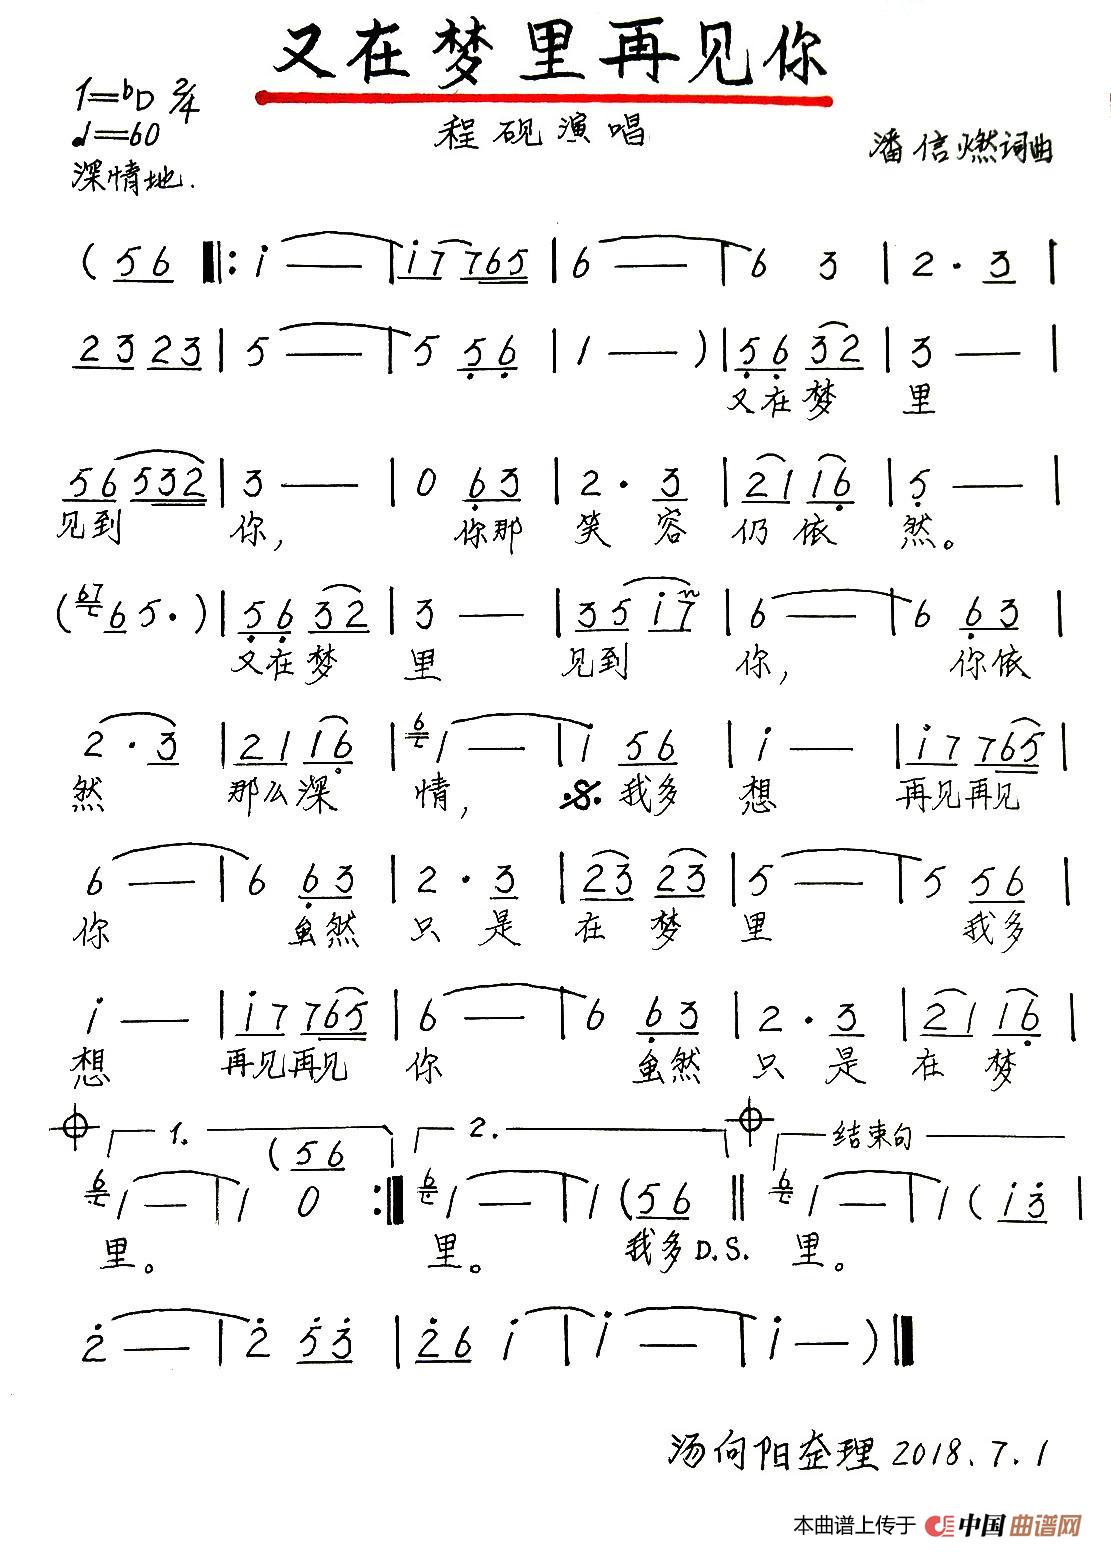 又在梦里再见你
1=♭D 2/4
♩=60
程砚演唱
潘信燃词曲
深情地.
( 5 6 ‖: i — | i 7 7 6 5 | 6 — | 6 3 | 2 · 3 |
2 3 2 3 | 5 — | 5 5̣ 6̣ | 1 — ) | 5̣ 6̣ 3 2 | 3 — |
又在梦 里
5 6 5 3 2 | 3 — | 0 6̣ 3 | 2 · 3 | 2 1 1 6̣ | 5̣ — |
见到 你, 你那 笑 容 仍 依 然。
( 67 6 5 · ) | 5̣ 6̣ 3 2 | 3 — | 3 5 i 7 | 6 — | 6 6̣ 3 |
又在梦 里 见到 你, 你依
2 · 3 | 2 1 1 6̣ | 6 1 — | i 5 6 | i — | i 7 7 6 5 |
然 那么深 情, 𝄋 我多 想 再见再见
6 — | 6 6̣ 3 | 2 · 3 | 2 3 2 3 | 5 — | 5 5 6 |
你 虽然 只 是 在 梦 里 我多
i — | i 7 7 6 5 | 6 — | 6 6̣ 3 | 2 · 3 | 2 1 1 6̣ |
想 再见再见 你 虽然 只 是 在 梦
1. 2. 结束句
( 5 6
6 1 — | 1 0 :‖ 6 1 — | 1 ( 5 6 ‖ 6 1 — | 1 ( i 3̇ |
里。 里。 我多 D.S. 里。
2̇ — | 2̇ 5̇ 3̇ | 2̇ 6 i | i — | i — ) ‖
汤向阳整理 2018.7.1
本曲谱上传于 中国曲谱网